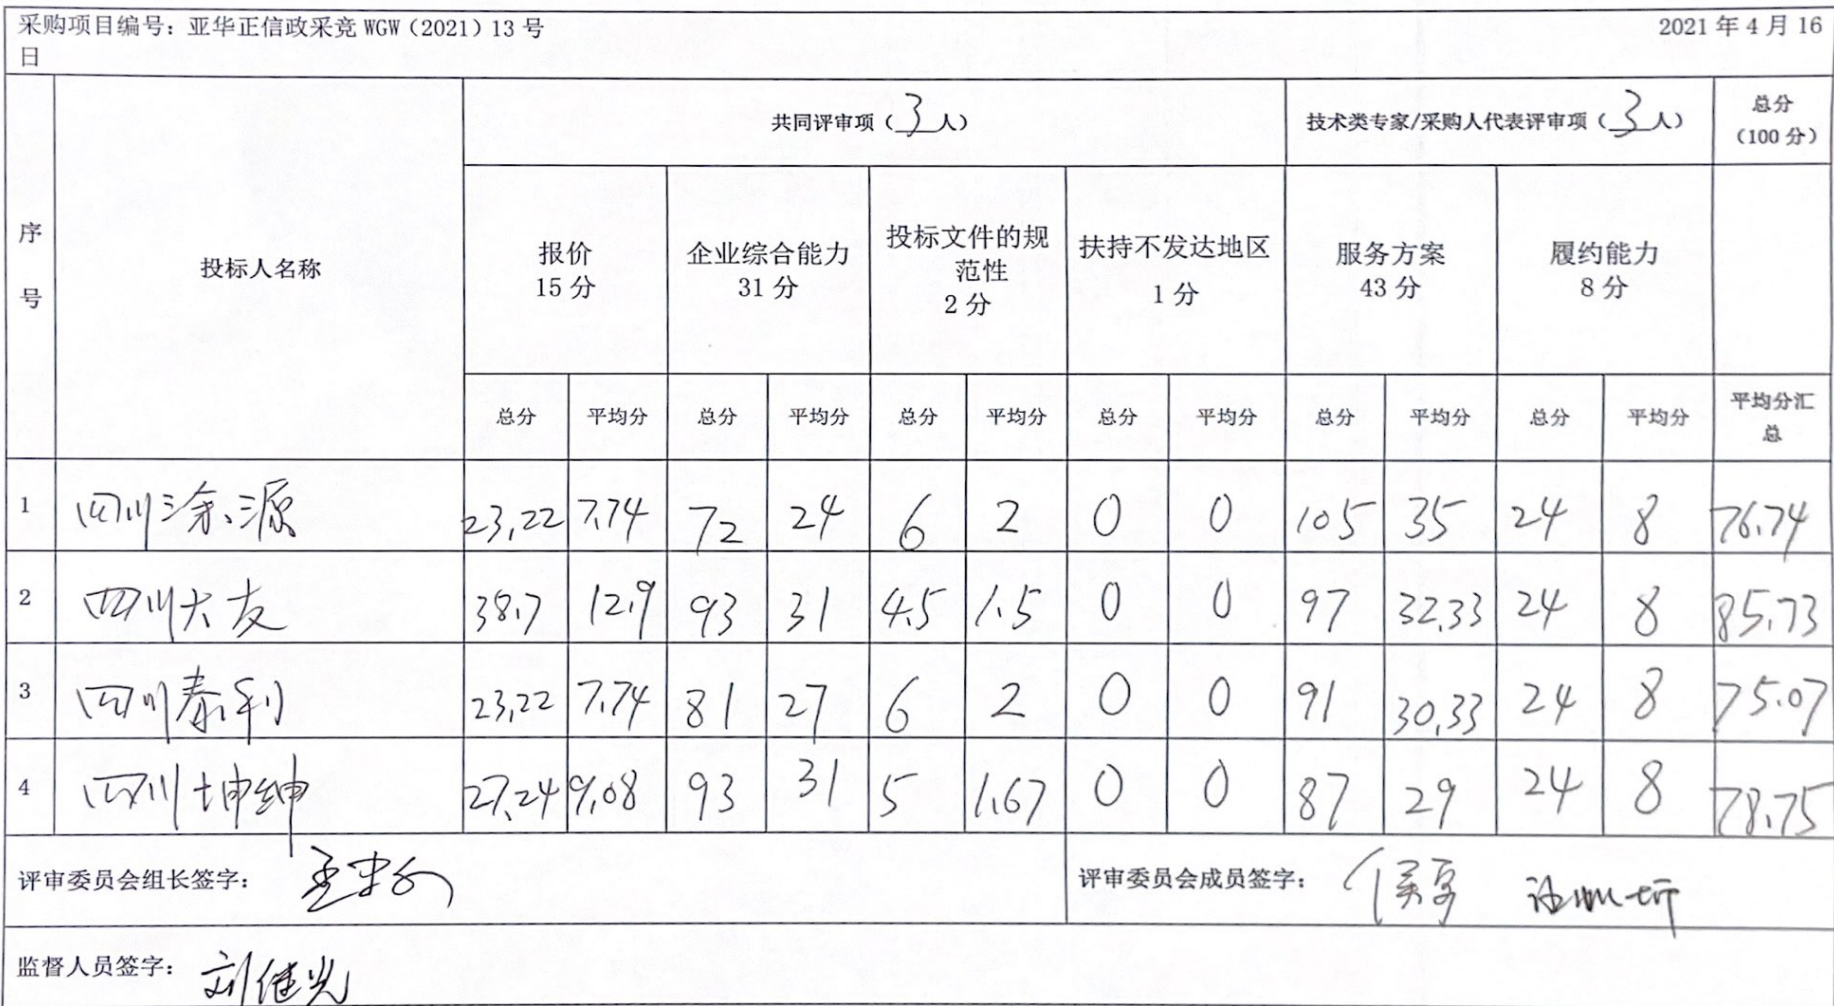 采购项目编号：亚华正信政采竞 WGW（2021）13 号 2021 年 4 月 16
日
序号 投标人名称 共同评审项（3人） 技术类专家/采购人代表评审项（3人） 总分
（100 分）
报价
15 分
企业综合能力
31 分
投标文件的规
范性
2 分
扶持不发达地区
1 分
服务方案
43 分
履约能力
8 分
总分 平均分 总分 平均分 总分 平均分 总分 平均分 总分 平均分 总分 平均分 平均分汇
总
1 四川涂源 23.22 7.74 72 24 6 2 0 0 105 35 24 8 76.74
2 四川大友 38.7 12.9 93 31 4.5 1.5 0 0 97 32.33 24 8 85.73
3 四川泰利 23.22 7.74 81 27 6 2 0 0 91 30.33 24 8 75.07
4 四川坤绅 27.24 9.08 93 31 5 1.67 0 0 87 29 24 8 78.75
评审委员会组长签字： 评审委员会成员签字：
监督人员签字：刘健光